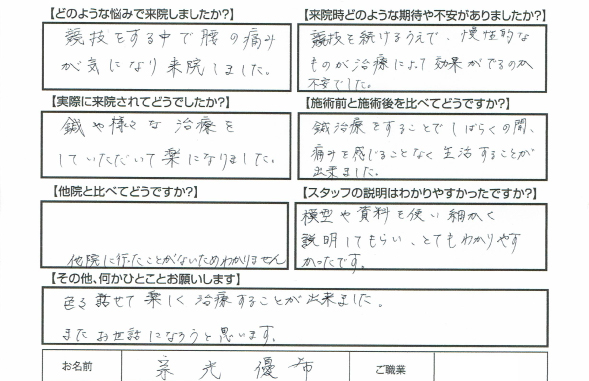 【どのような悩みで来院しましたか?】
競技をする中で腰の痛み
が気になり来院しました。
【来院時どのような期待や不安がありましたか?】
競技を続けるうえで、慢性的な
ものが治療によって効果がでるのか
不安でした。
【実際に来院されてどうでしたか?】
鍼や様々な治療を
していただいて楽になりました。
【施術前と施術後を比べてどうですか?】
鍼治療をすることでしばらくの間、
痛みを感じることなく生活することが
出来ました。
【他院と比べてどうですか?】
他院に行ったことがないためわかりません
【スタッフの説明はわかりやすかったですか?】
模型や資料を使い細かく
説明してもらい、とてもわかりやす
かったです。
【その他、何かひとことお願いします】
色々話せて楽しく治療することが出来ました。
またお世話になろうと思います。
お名前
光 優 希
ご職業